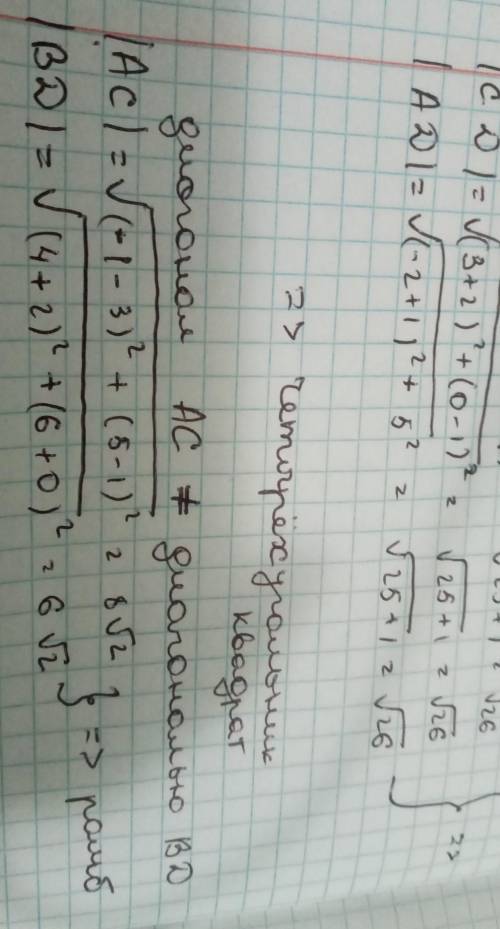 √26
|CD| = √(3+2)² + (0-1)² = √25+1 = √26
|AD| = √(-2+1)² + 5² = √25+1 = √26 } =>
=> четырёхугольник
квадрат
диагональ AC ≠ диагональю BD
|AC| = √(-1-3)² + (5-1)² = 8√2 } => ромб
|BD| = √(4+2)² + (6+0)² = 6√2